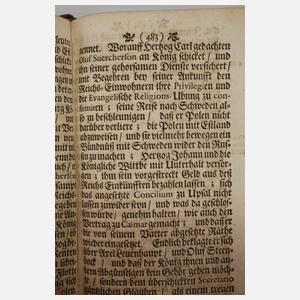 ( 483 )
nennet. Worauff Hertzog Carl gedachten
Oluf Suercherson an König schicket / und
ihn seiner gehorsamen Dienste versichert /
mit Begehren bey seiner Ankunfft den
Reichs-Einwohnern ihre Privilegien und
die Evangelische Religions-Ubung zu con-
firmiren ; seine Reise nach Schweden al-
so zu beschleunigen / daß er Polen nicht
darüber verliere ; die Polen mit Estland
abzuweisen / und sie vielmehr bewegen ein
Bündnüß mit Schweden wider den Rus-
sen zu machen ; Hertzog Johann und die
Königliche Wittbe mit Unterhalt versor-
gen ; ihm sein vorgestreckt Geld aus des
Reichs Einkünfften bezahlen lassen ; sich
das angesetzte Concilium zu Upsal nicht
lassen zuwider seyn / und was da geschlos-
sen würde / genehm halten / wie auch den
Vertrag zu Calmar gemacht ; und daß er
die von seinem Vatter abgesetzte Räthe
wieder eingesetzet. Endlich beklagte er sich
über Axel Leuenhaupt / und Oluf Steen-
bock / und daß der König ihnen und an-
dern Abgünstigen kein Gehör geben möch-
te / sondern dem überschickten Secretario
gäntzlichen Glauben / als einem treuen